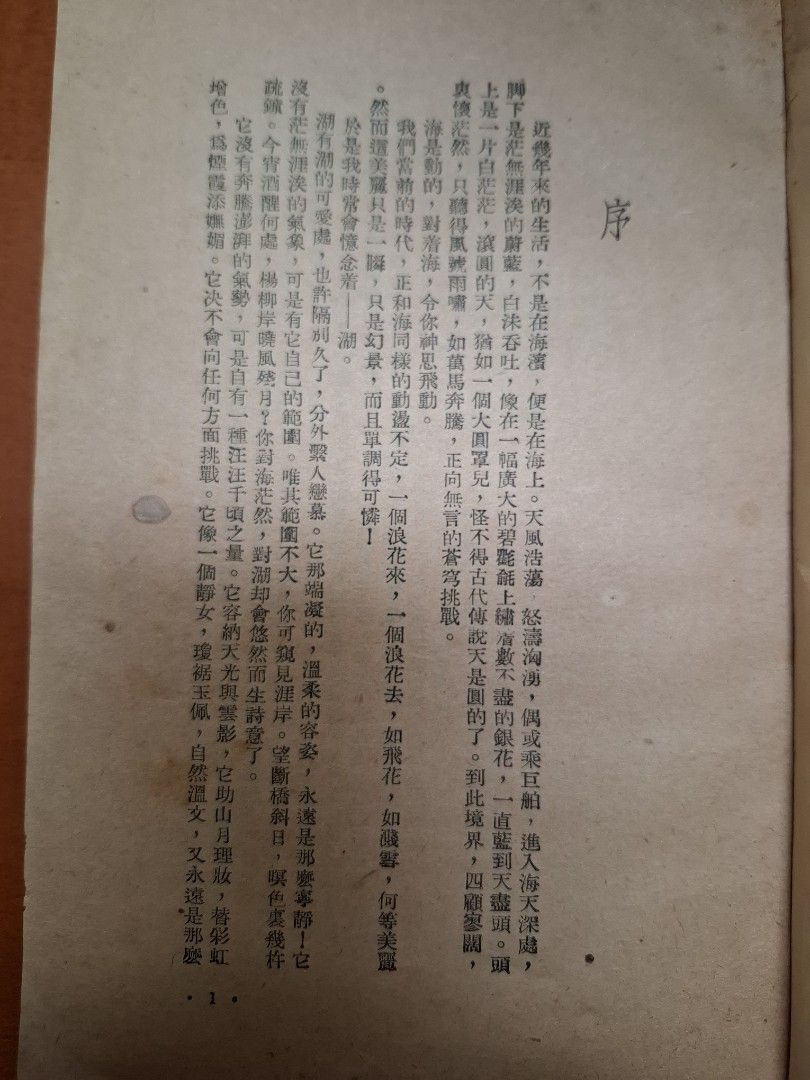 序
近幾年來的生活，不是在海濱，便是在海上。天風浩蕩，怒濤洶湧，偶或乘巨舶，進入海天深處，
脚下是茫無涯涘的蔚藍，白沫吞吐，像在一幅廣大的碧氍毹上繡着數不盡的銀花，一直藍到天盡頭。頭
上是一片白茫茫，滾圓的天，猶如一個大圓罩兒，怪不得古代傳說天是圓的了。到此境界，四顧寥闊，
衷懷茫然，只聽得風號雨嘯，如萬馬奔騰，正向無言的蒼穹挑戰。
海是動的，對着海，令你神思飛動。
我們當前的時代，正和海同樣的動盪不定，一個浪花來，一個浪花去，如飛花，如濺雪，何等美麗
。然而這美麗只是一瞬，只是幻景，而且單調得可憐！
於是我時常會憶念着——湖。
湖有湖的可愛處，也許隔別久了，分外繫人戀慕。它那端凝的，溫柔的容姿，永遠是那麼寧靜！它
沒有茫無涯涘的氣象，可是有它自己的範圍。唯其範圍不大，你可窺見涯岸。望斷橋斜日，暝色裏幾杵
疏鐘。今宵酒醒何處，楊柳岸曉風殘月？你對海茫然，對湖却會悠然而生詩意了。
它沒有奔騰澎湃的氣勢，可是自有一種汪汪千頃之量。它容納天光與雲影，它助山月理妝，替彩虹
增色，爲煙霞添嫵媚。它决不會向任何方面挑戰。它像一個靜女，瓊裾玉佩，自然溫文，又永遠是那麼
• 1 •